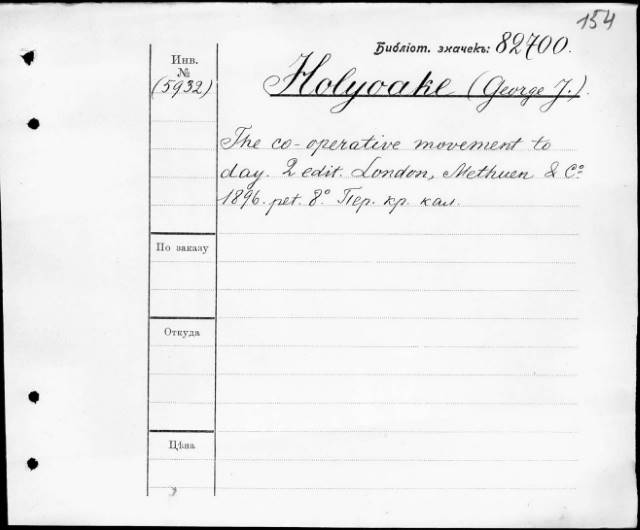 154
Библіот. значекъ: 82700.
Инв.
№
(5932)
Holyoake (George J.).
The co-operative movement to
day. 2 edit. London, Methuen & Cº
1896. pet. 8º Пер. кр. кал.
По заказу
Откуда
Цѣна